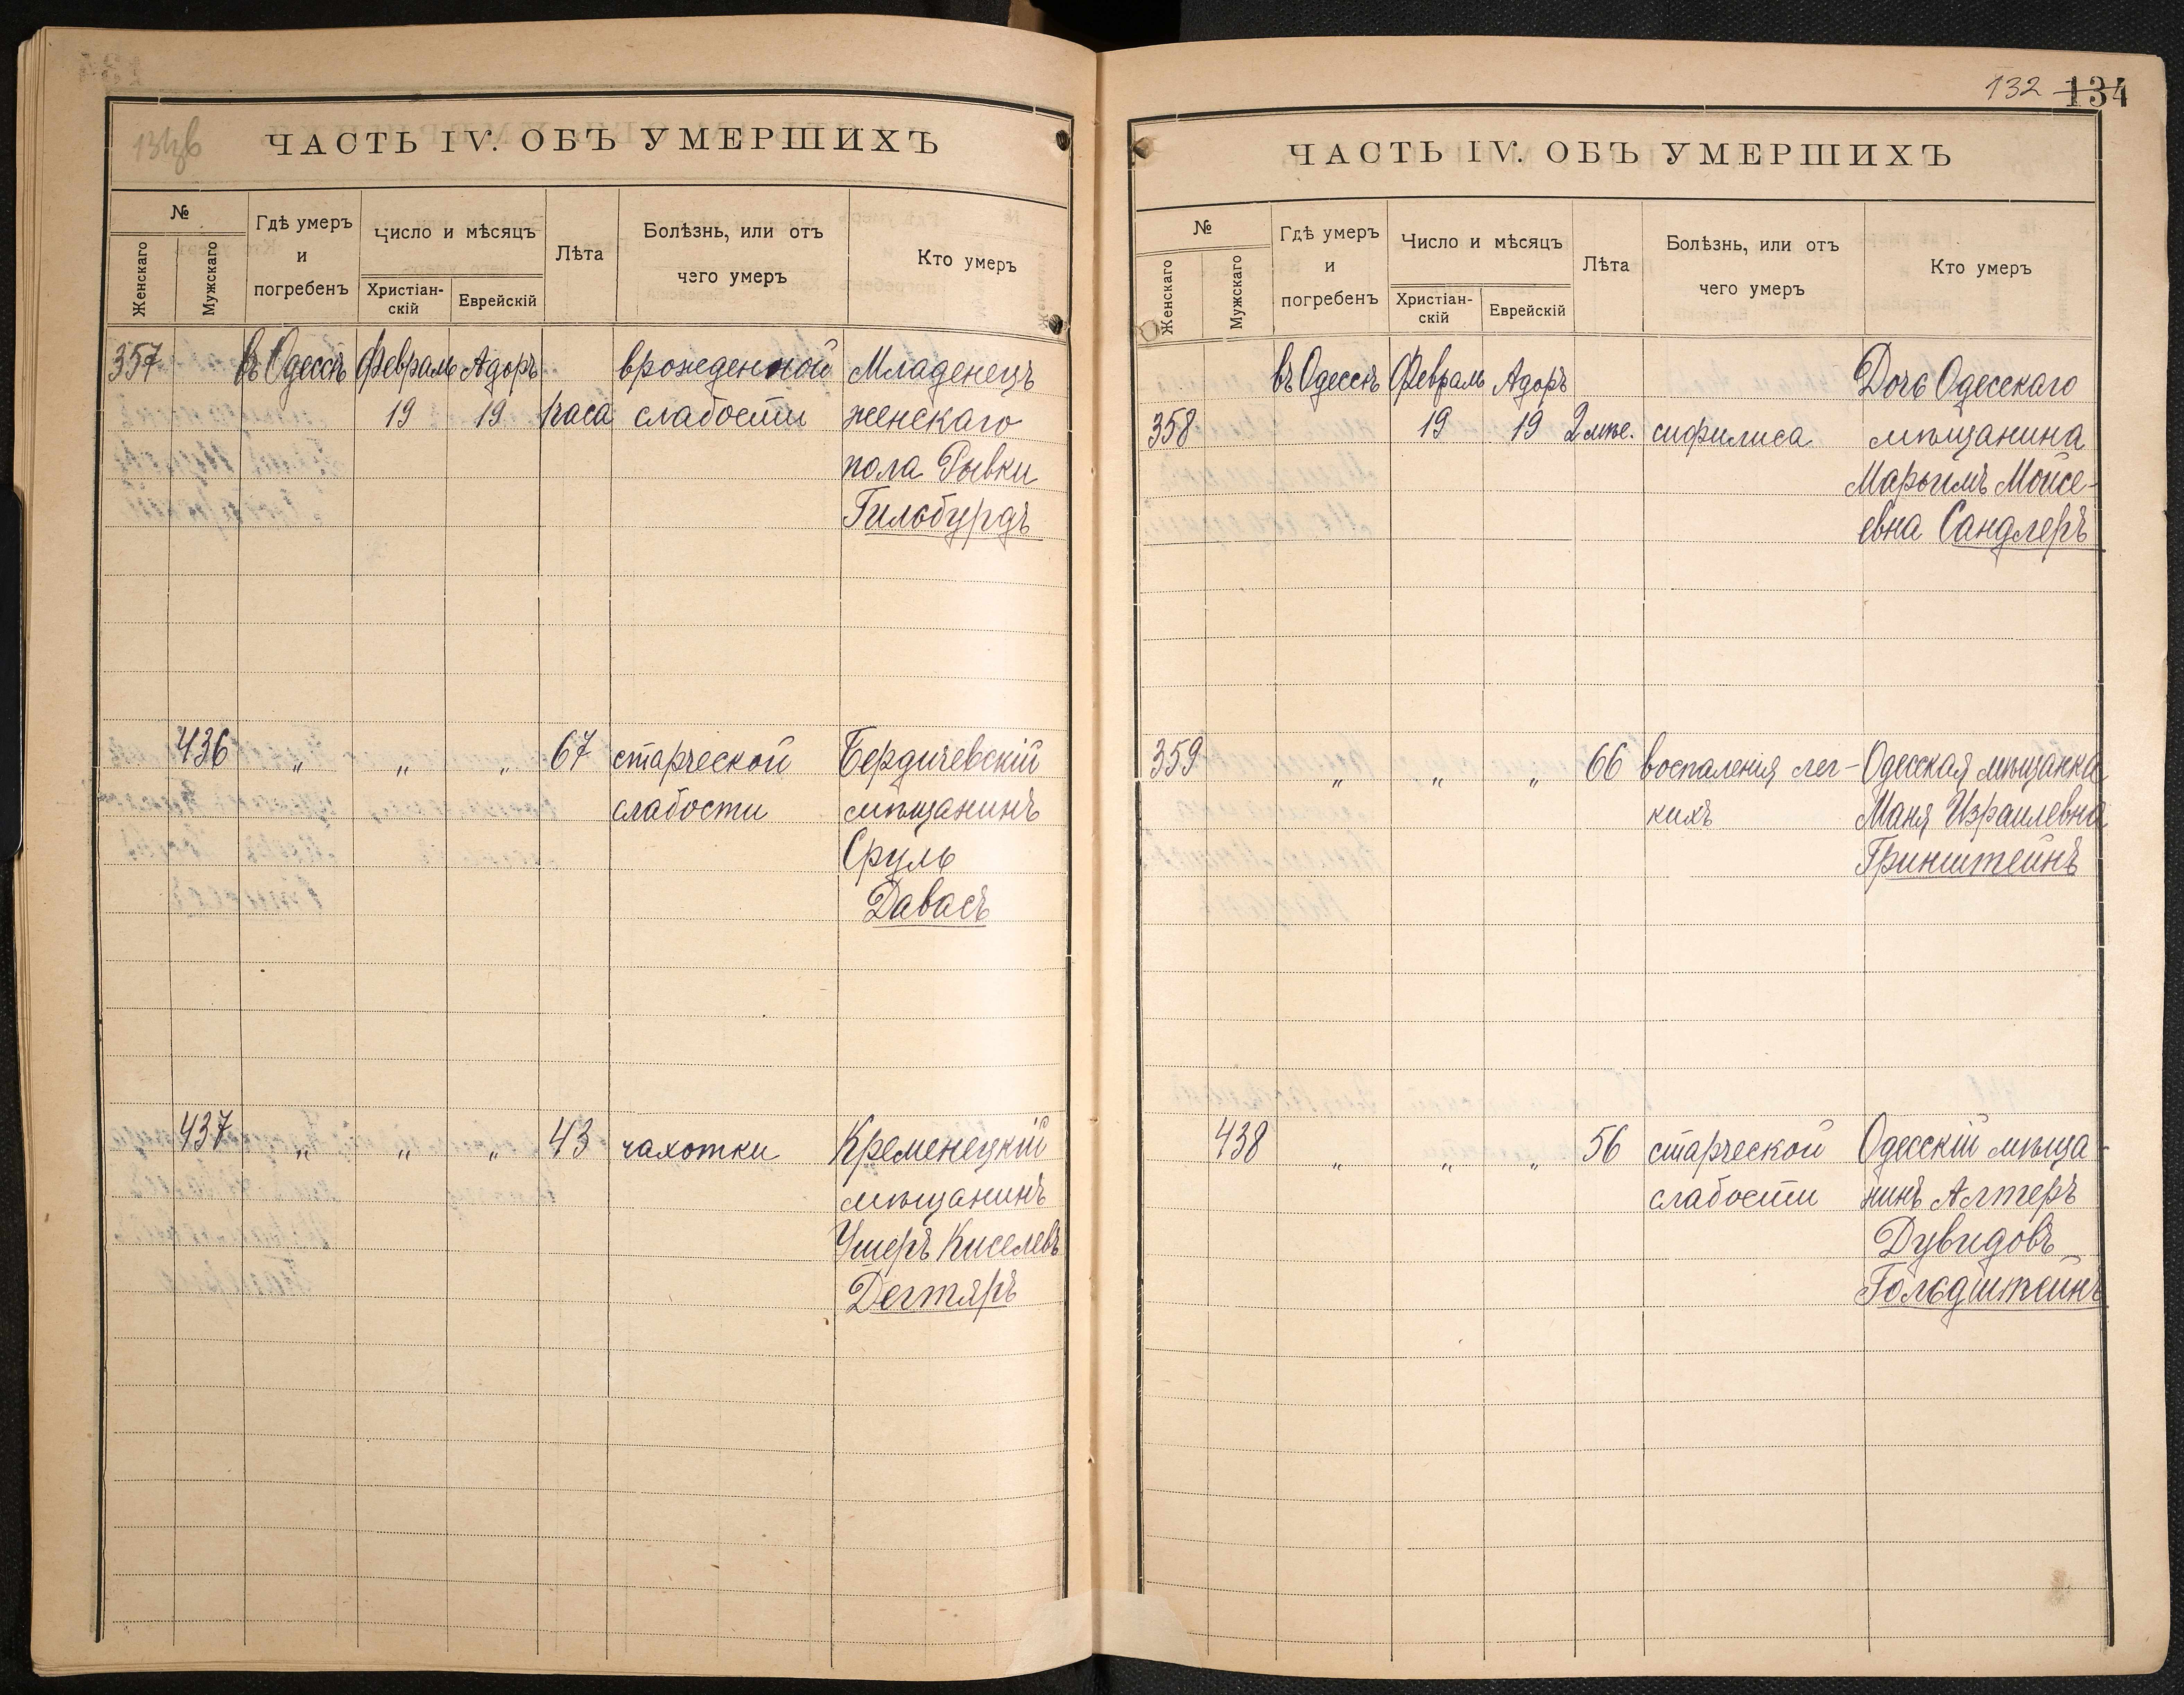 ЧАСТЬ IV. ОБЪ УМЕРШИХЪ
№
Женскаго
Мужскаго
Гдѣ умеръ
и
погребенъ
Число и мѣсяцъ
Христіан-
скій
Еврейскій
Лѣта
Болѣзнь, или отъ
чего умеръ
Кто умеръ
357 въ Одессѣ Февраль Адоръ врожденной Младенецъ
19 19 1 часа слабости женскаго
пола Рывки
Гильбурдъ
436 " " " 67 старческой Бердичевскій
слабости мѣщанинъ
Сруль
Давасъ
437 " " " 43 чахотки Кременецкій
мѣщанинъ
Ушеръ Киселевъ
Дегтяръ
132 134
ЧАСТЬ IV. ОБЪ УМЕРШИХЪ
№
Женскаго
Мужскаго
Гдѣ умеръ
и
погребенъ
Число и мѣсяцъ
Христіан-
скій
Еврейскій
Лѣта
Болѣзнь, или отъ
чего умеръ
Кто умеръ
въ Одессѣ Февраль Адоръ Дочь Одесскаго
358 19 19 2 мѣс. сифилиса мѣщанина
Марьимъ Мойсе-
евна Сандлеръ
359 " " " 66 воспаленія лег- Одесская мѣщанка
кихъ Маня Израилевна
Гринштейнъ
438 " " " 56 старческой Одесскій мѣща-
слабости нинъ Алтеръ
Дувидовъ
Гольдштейнъ